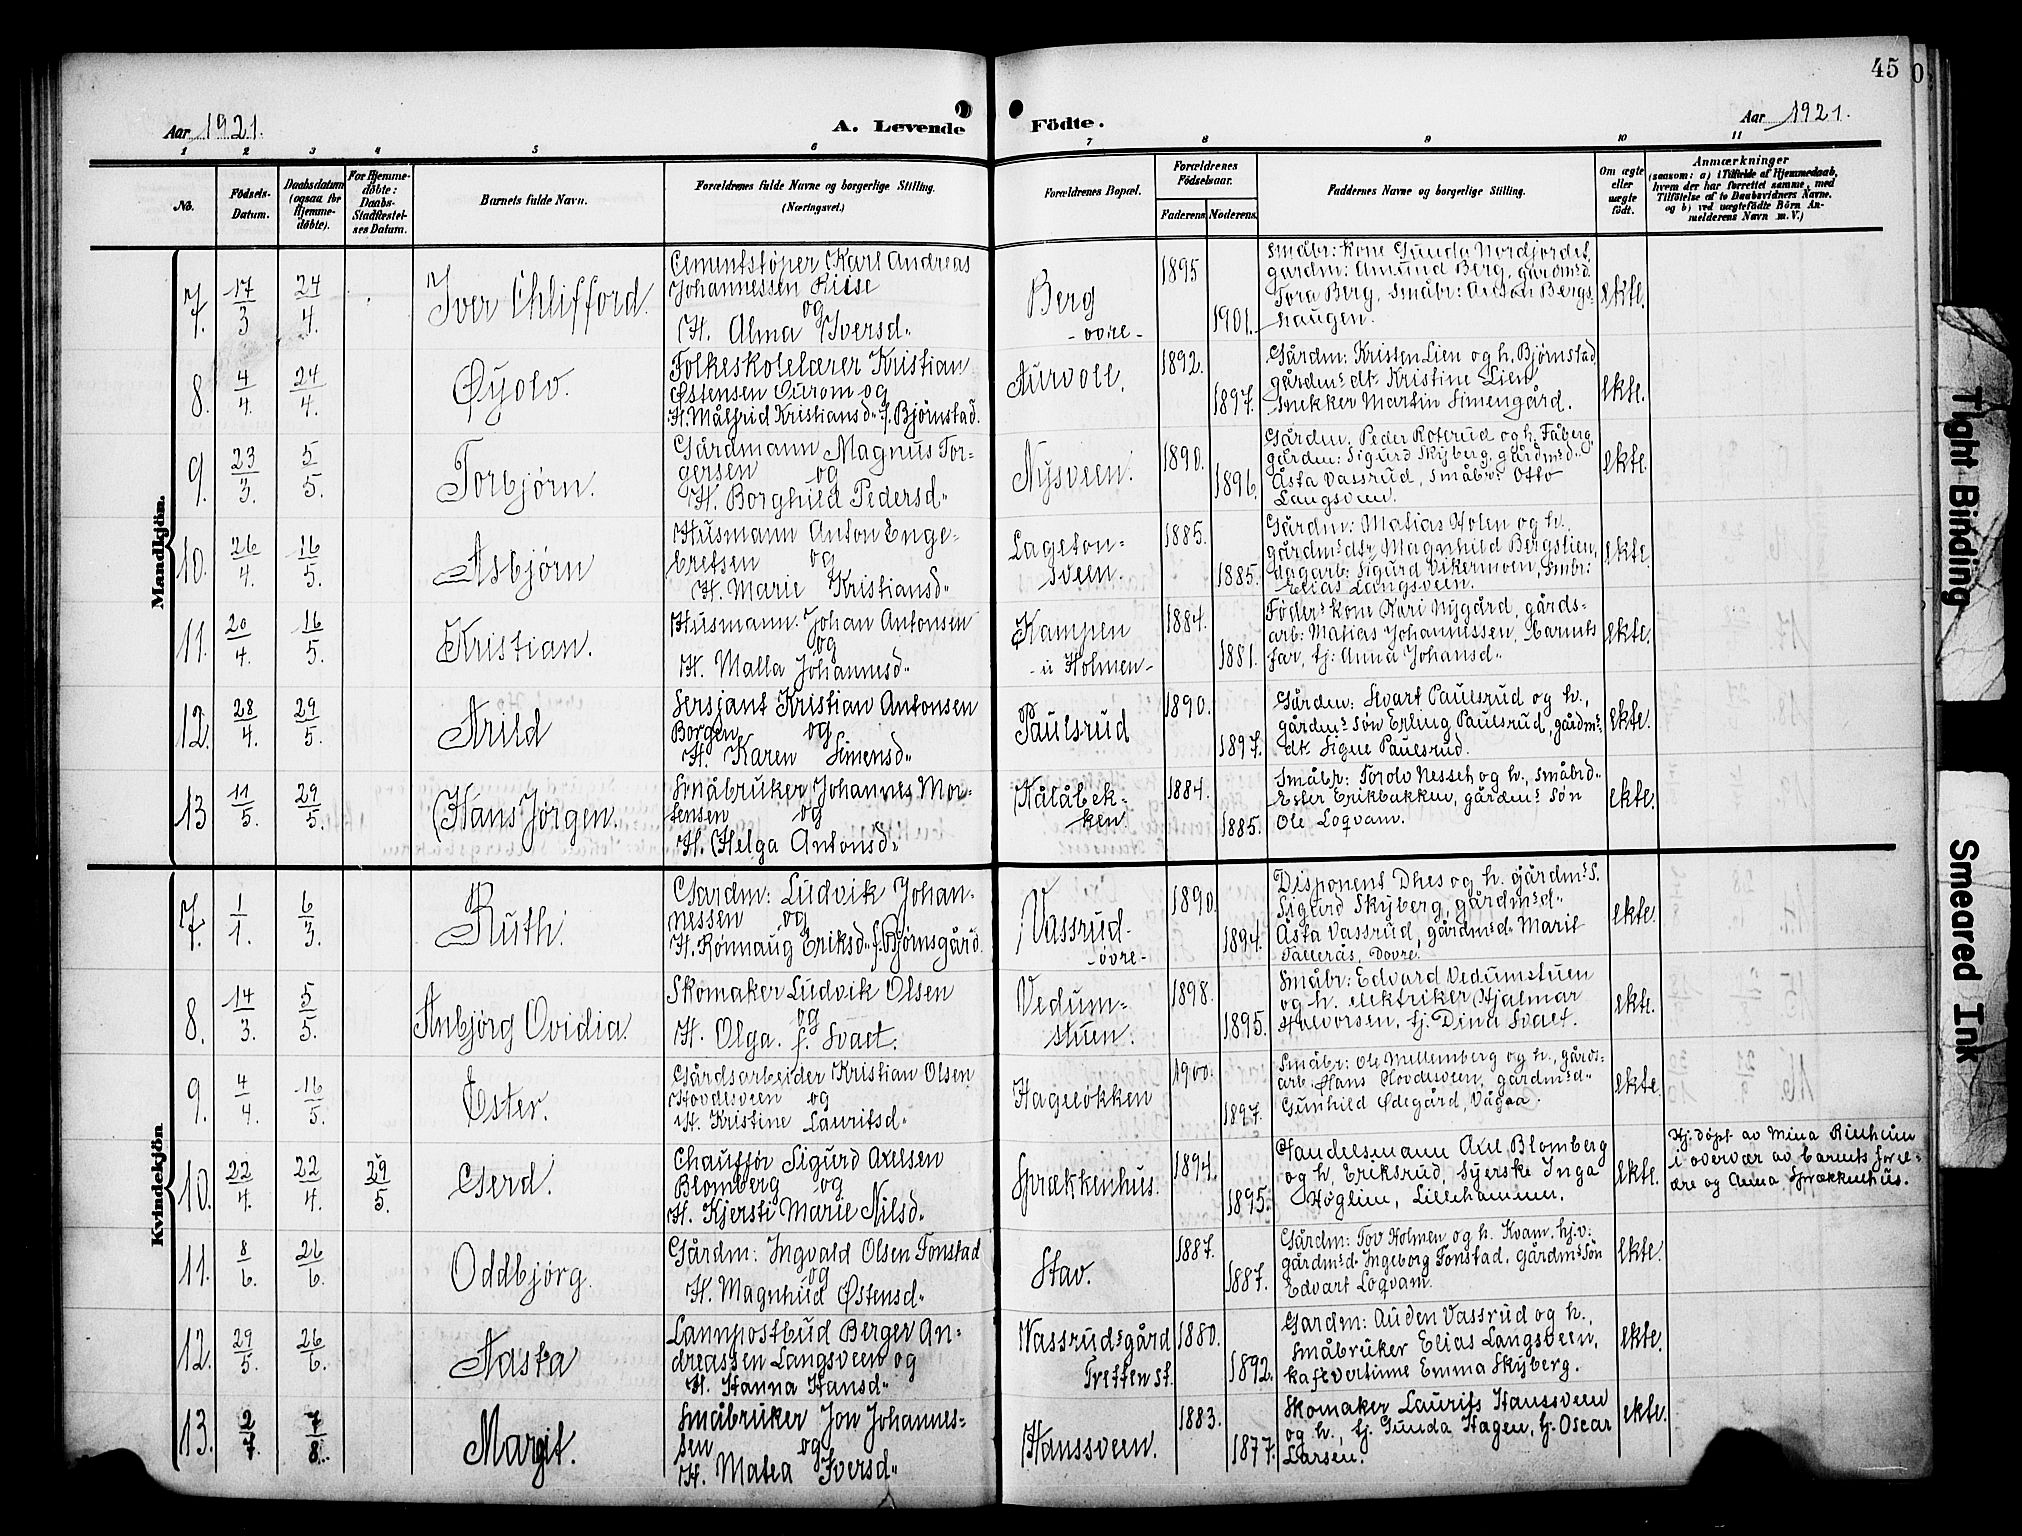 45
Aar 1921.
A. Levende Födte.
Aar 1921.
1 2 3 4 5 6 7 8 9 10 11
No.
Födsels-Datum.
Daabsdatum (ogsaa for Hjemme-döbte).
For Hjemme-döbte: Daabs-Stadfæstel-ses Datum.
Barnets fulde Navn.
Forældrenes fulde Navne og borgerlige Stilling. (Næringsvei.)
Forældrenes Bopæl.
Forældrenes Födselsaar.
Faderens. Moderens.
Faddernes Navne og borgerlige Stilling.
Om ægte eller uægte födt.
Anmærkninger
(saasom: a) i Tilfælde af Hjemmedaab,
hvem der har forrettet samme, med
Tilföielse af to Daabsvidners Navne.
og b) ved uægtefödte Börn An-
melderens Navn m. V.)
Mandkjön.
7. 17/3 24/4 Iver Chlifford.
Cementstøper Karl Andreas
Johannessen Riise
og
H. Alma Iversd..
Berg
- øvre -
1895 1901.
Småbr: kone Gunda Nordjordet,
gårdm: Amund Berg, gårdmsd.
Tora Berg, Småbr: Anton Bergs-
haugen.
ekte.
8. 4/4. 24/4. Øyolv.
Folkeskolelærer Kristian
Østensen Ourom og
H. Målfrid Kristiansd.. f. Bjørnstad.
Aurvoll.
1892. 1897.
Gårdm: Kristen Lien og h. Bjørnstad,
gårdms dt. Kristine Lien,
Snekker Martin Simengård.
ekte.
9. 23/3. 5/5. Torbjørn.
Gårdmann Magnus Tor-
gersen og
H. Borghild Pedersd..
Nysveen.
1890. 1896.
Gårdm: Peder Roterud og h. Fåberg,
gårdm: Sigurd Skyberg, gårdmsd..
Åsta Vassrud, småbr: Otto
Langsveen.
ekte.
10. 26/4. 16/5. Asbjørn
Husmann Anton Enge-
bretsen og
H. Marie Kristiansd..
Lageton-
sveen.
1885. 1885.
Gårdm: Matias Holen og h.,
gårdmsdtr Magnhild Bergslien,
dagarb: Sigurd Vikermoen, Småbr:
Elias Langsveen.
ekte.
11. 20/4. 16/5. Kristian.
Husmann. Johan Antonsen
og
H. Malla Johannesd..
Kampen
- u Holmen -
1884. 1881.
Føder: kone Kari Nygård, gårds-
arb: Matias Johannessen, Barnets
far, tj: Anna Johansd..
ekte.
12. 28/4. 29/5. Arild
Sersjant Kristian Antonsen
Borgen og
H. Karen Simensd..
Paulsrud
1890. 1897.
Gårdm: Sivart Paulsrud og h.,
gårdms søn Erling Paulsrud, gårdms:
dt. Signe Paulsrud.
ekte.
13 11/5. 29/5. Hans Jørgen.
Småbruker Johannes Mor-
tensen og
H. Helga Antonsd..
Kålåbek-
ken.
1884. 1885.
Småbr: Torolv Nesset og h., småbrd..
Ester Erikbakken, gårdms søn
Ole Loqvam.
ekte.
Kvindekjön
7. 1/1. 6/3. Ruth.
Gardm: Ludvik Johan-
nessen og
H. Rønnaug Eriksd.. f. Bjørnsgård.
Vassrud.
- øvre -
1890. 1894.
Disponent Dhes og h. gårdms S.
Sigurd Skyberg, gårdmsd..
Åsta Vassrud, gårdmsd.. Marit
Tallerås, Dovre.
ekte.
8. 14/3. 5/5. Anbjørg Ovidia.
Skomaker Ludvik Olsen
og
H. Olga. f. Svaet.
Vedum-
stuen.
1898. 1895.
Småbr: Edvard Vedumstuen
og h. elektriker Hjalmar
Halvorsen, tj. Dina Svaet.
ekte.
9. 4/4. 16/5. Ester.
Gårdsarbeider Kristian Olsen
Hovdesveen og
H. Kristine Lauritsd..
Hageløkken
1900. 1897.
Småbr: Ole Mellemberg og h., gårds-
arb: Hans Hovdesveen, gårdmsd..
Gunhild Ødegård, Vågaa.
ekte.
10. 22/4. 22/4. 29/5. Gerd.
Chauffør Sigurd Axelsen
Blomberg og
H. Kjersti Marie Nilsd..
Sprækkenhus.
1894. 1895.
Handelsmann Axel Blomberg
og h, Eriksrud, Syerske Inga
Høglien, Lillehammer.
ekte.
Hj. døpt av Mina Rinheim
i overvær av barnets foræl-
dre og Anna Sprækkenhus.
11. 8/6. 26/6. Oddbjørg.
Gårdm: Ingvald Olsen Fonstad
og
H. Magnhild Østensd..
Stav.
1887. 1887.
Gårdm: Tov Holmen og h. Kvam. hjv:
gårdmsd. Ingeborg Fonstad, gårdms søn
Edvart Loqvam.
ekte.
12. 29/5. 26/6. Aasta
Lannpostbud Berger An-
dreassen Langsveen og
H. Hanna Hansd..
Vassrudsgård
Tretten st.
1880. 1892.
Gardm: Auden Vassrud og h.,
småbruker Elias Langsveen,
kafevertinne Emma Skyberg.
ekte.
13. 2/7. 7/8. Margit.
Småbruker Jon Johannes-
sen og
H. Matea Iversd..
Hanssveen.
1883. 1877.
Skomaker Laurits Hanssveen
og h., tj. Gunda Hagen, tj. Oscar
Larsen.
ekte.
Tight Binding
Smeared Ink